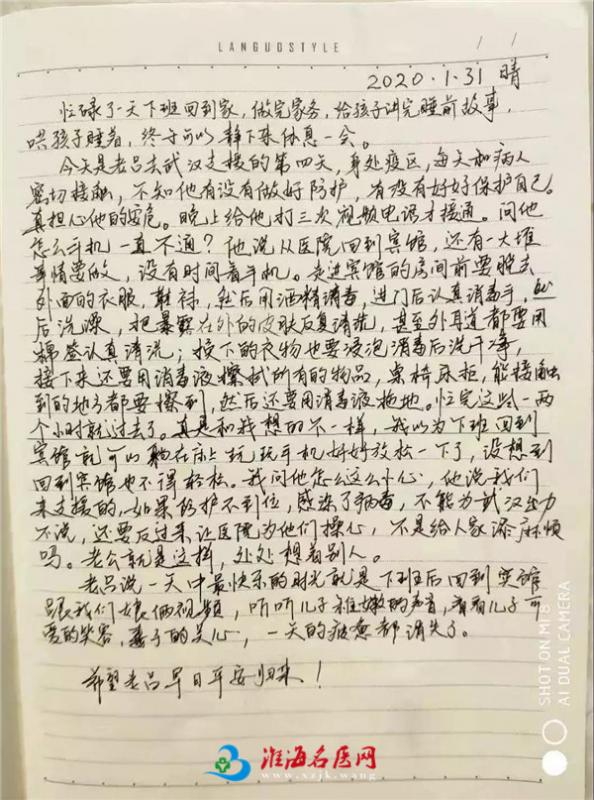 LANGUOSTYLE
/ /
2020.1.31 晴
忙碌了一天下班回到家，做完家务，给孩子讲完睡前故事，
哄孩子睡着，终于可以静下来休息一会。
今天是老吕去武汉支援的第四天，身处疫区，每天和病人
密切接触，不知他有没有做好防护，有没有好好保护自己。
真担心他的安危。晚上给他打三次视频电话才接通。问他
怎么手机一直不通？他说从医院回到宾馆，还有一大堆
事情要做，没有时间看手机。走进宾馆的房间前要脱去
外面的衣服，鞋袜，然后用酒精消毒，进门后认真消毒手，然
后洗澡，把暴露在外的皮肤反复清洗，甚至外耳道都要用
棉签认真清洗；换下的衣物也要浸泡消毒后洗干净，
接下来还要用消毒液擦拭所有的物品，桌椅床柜，能接触
到的地方都要擦到，然后还要用消毒液拖地。忙完这些一两
个小时就过去了。真是和我想的不一样，我以为下班回到
宾馆就可以躺在床上玩玩手机好好放松一下了，没想到
回到宾馆也不得轻松。我问他怎么这么小心，他说我们
来支援的，如果防护不到位，感染了病毒，不能为武汉出力
不说，还要反过来让医院为他们操心，不是给人家添麻烦
吗。老公就是这样，处处想着别人。
老吕说一天中最快乐的时光就是下班后回到宾馆
跟我们娘俩视频，听听儿子稚嫩的声音，看看儿子可
爱的笑容，妻子的关心，一天的疲惫都消失了。
希望老吕早日平安归来！
SHOT ON MI 6
AI DUAL CAMERA
淮海名医网
www.xzjk.wang